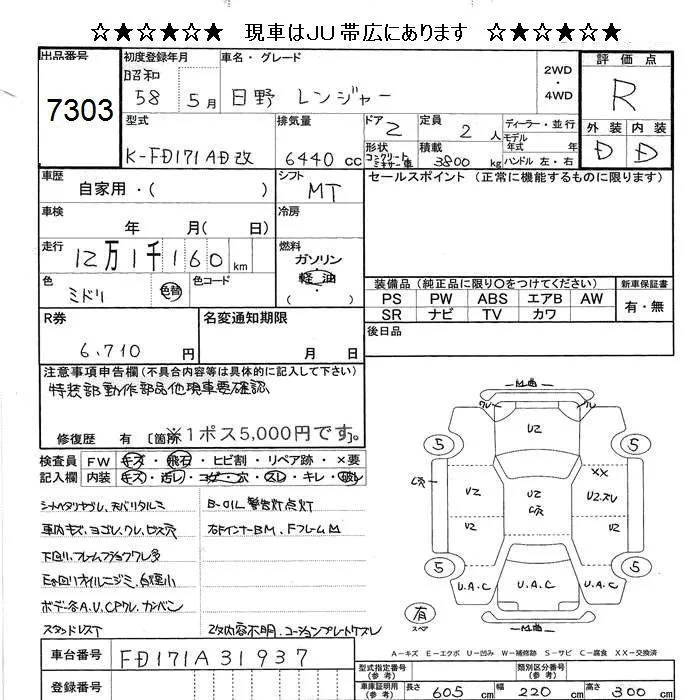 ☆★☆★☆★ 現車はJU帯広にあります ☆★☆★☆★
出品番号 7303
初度登録年月 昭和 58 5月
車名・グレード 日野 レンジャー
2WD ・ 4WD
評価点 R
外装 内装
D D
型式 K-FD171AD改
排気量 6440 cc
ドア 2
定員 2 人
ディーラー・並行
モデル年式 年
形状 コンクリートミキサー車
積載 3800 kg
ハンドル 左・右
車歴 自家用・( )
シフト MT
セールスポイント (正常に機能するものに限ります)
車検 年 月( 日)
冷房
走行 12万1千160 km
燃料 ガソリン 軽油 ( )
色 ミドリ 色替
色コード
装備品 (純正品に限り○をつけてください)
新車保証書
PS PW ABS エアB AW
SR ナビ TV カワ
有・無
R券 6,710 円
名変通知期限 月 日
後日品
注意事項申告欄 (不具合内容等は具体的に記入して下さい)
特装部動作部品他現車要確認
修復歴 有 [箇所 ※1ポス5,000円です。
検査員記入欄
FW キズ・飛石・ヒビ割・リペア跡・×要
内装 キズ・汚レ・コゲ・穴・スレ・キレ・破レ
B-OIL警告灯点灯
下回リ、フレームサビ
スタンドレスT
車台番号 FD171A31937
登録番号
M曲
クレ
ル
U2
5 5
XX
U2
U2
U2.スレ
U2
U2
5 5
U.A.C
U.A.C
U.A.C
有
スペア
M曲
A−キズ E−エクボ U−凹み W−補修跡 S−サビ C−腐食 XX−交換済
型式指定番号 (参考)
類別区分番号 (参考)
車庫証明用 (参考) 長さ 605 cm 幅 220 cm 高さ 300 cm